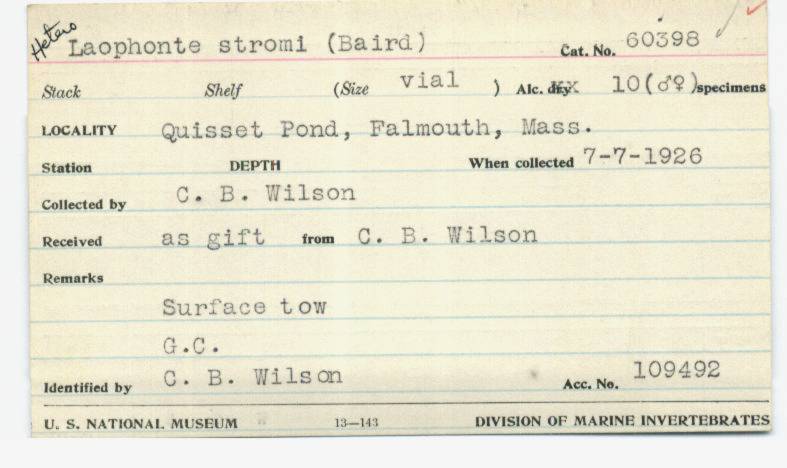 Hetero
Laophonte stromi (Baird) Cat. No. 60398
Stack Shelf (Size vial ) Alc. dry 10(♂♀) specimens
LOCALITY Quisset Pond, Falmouth, Mass.
Station DEPTH When collected 7-7-1926
Collected by C. B. Wilson
Received as gift from C. B. Wilson
Remarks
Surface tow
G.C.
Identified by C. B. Wilson Acc. No. 109492
U. S. NATIONAL MUSEUM 13—143 DIVISION OF MARINE INVERTEBRATES